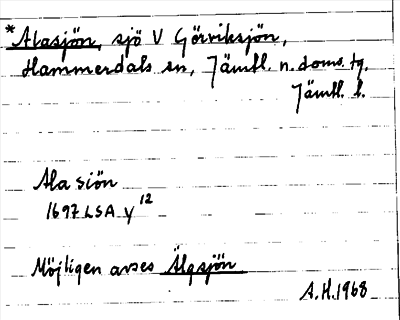 *Alasjön, sjö V Görviksjön,
Hammerdals sn, Jämtl. n. doms. tg.
Jämtl. l.
Ala siön
1697 LSA Y 12
Möjligen avses Älgsjön
A.H. 1968